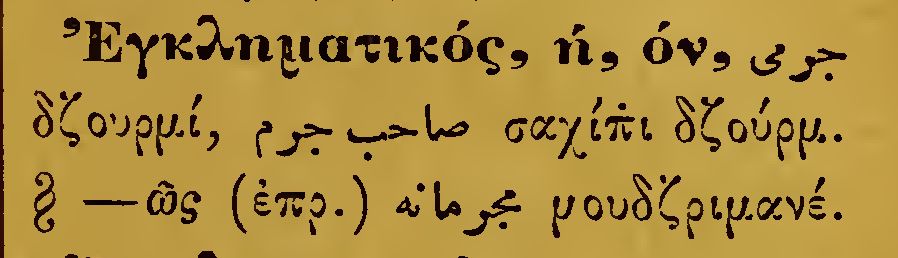 Ἐγκληματικός, ή, όν, جرمى
δζουρμί, صاحب جرم σαχίπ̇ι δζούρμ.
§ —ῶς (ἐπρ.) مجرمانه μουδζριμανέ.